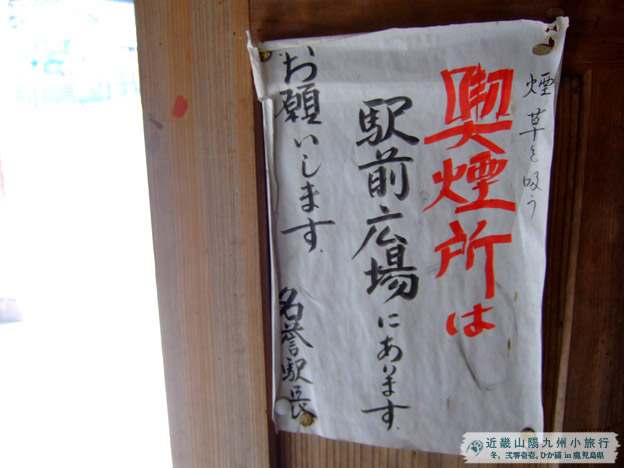 煙草を吸う
喫煙所は
駅前広場にあります
お願いします
名誉駅長
近畿山陽九州小旅行
冬，弐零壱壱，ひか猫 in 鹿児島県